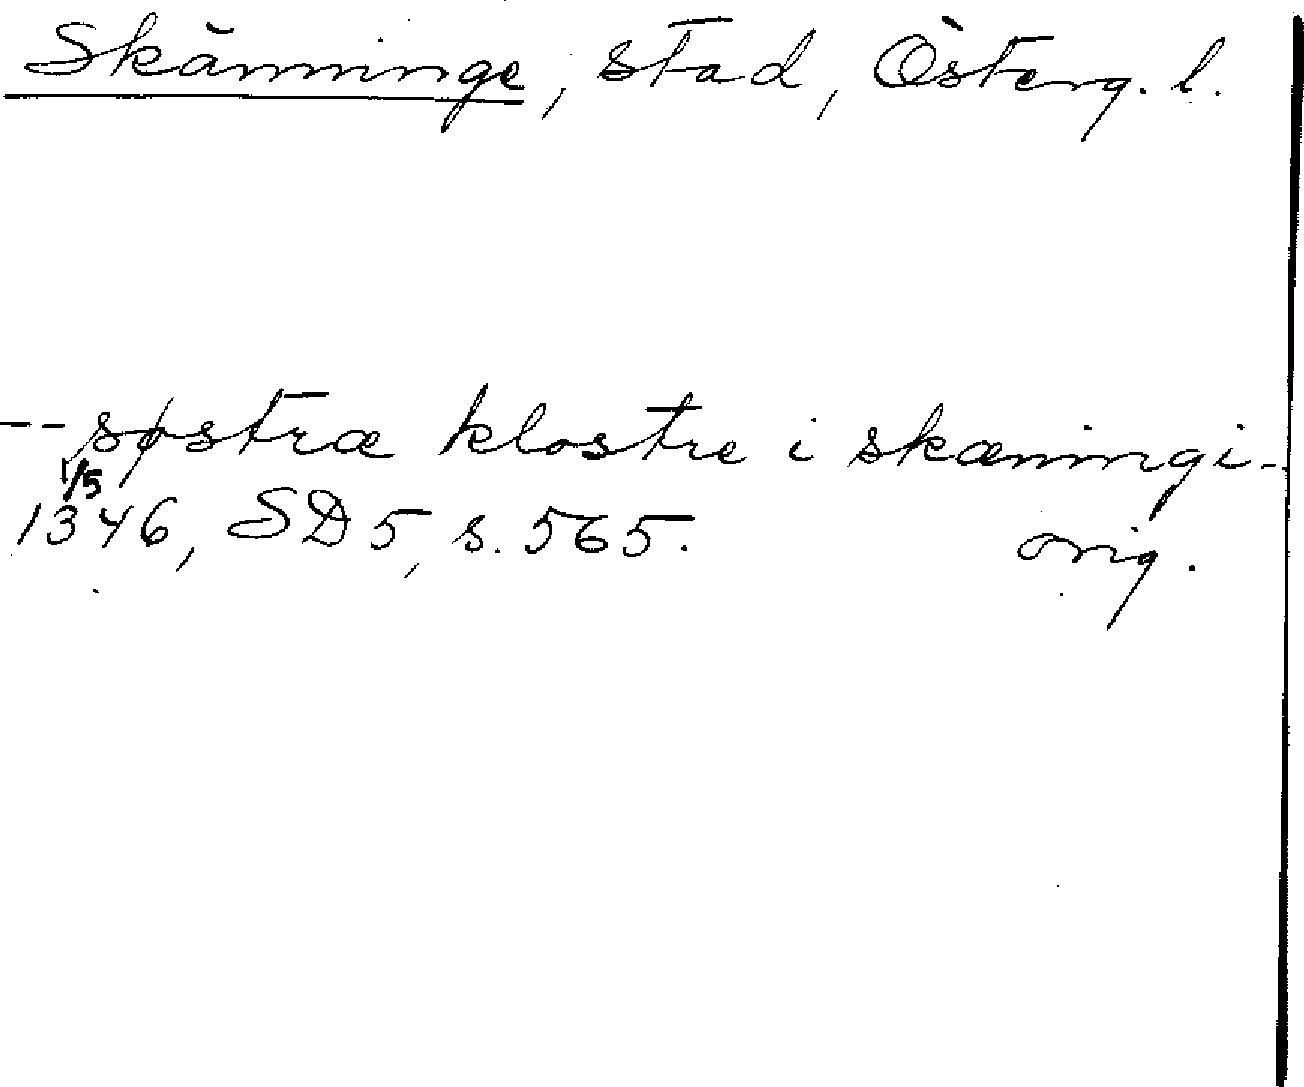 Skänninge, stad, Österg. l.
-- søstræ klostre i skæningi -
1/5
1346, SD 5, s. 565. orig.